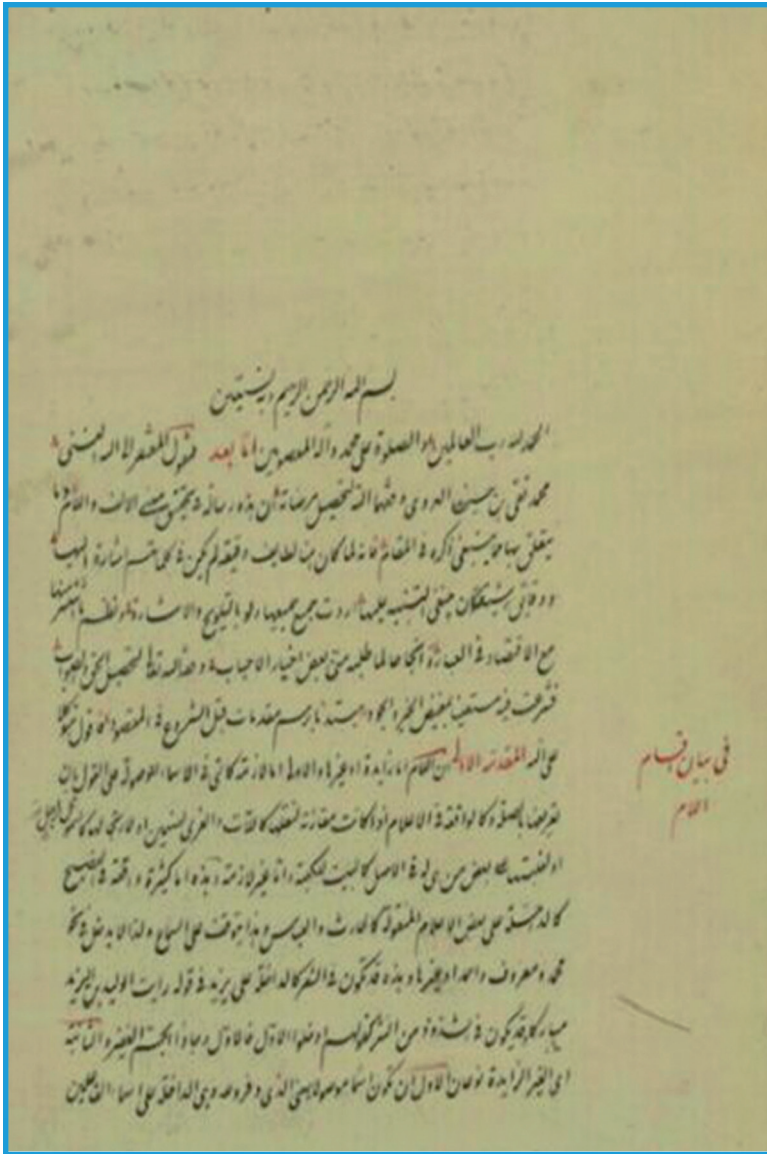 بسم الله الرحمن الرحيم وبه نستعين
الحمد لله رب العالمين والصلوة على محمد وآله المعصومين اما بعد فيقول المفتقر الى الله الغنى
محمد تقي بن حسين الهروى وفقهما الله لتحصيل مرضاته ان هذه رسالة في تحقيق معنى الالف واللام وما
يتعلق بها مما ينبغى ذكره في المقام فانه لما كان لطايف دقيقة لم يكن في كلماتهم اشارة اليها
ينبغى التنبيه عليها اردت جمع جميعها ولو بالتلويح والاشارة ونظم
مع الاقتصاد في العبارة انجاحا لما طلبه منى بعض اخيار الاحباب وفقه الله تعالى لتحصيل الحق والصواب
فشرعت فيه مستعينا بمفيض الخير والجود مبتدئا برسم مقدمات قبل الشروع في المقصود فاقول متوكلا
على الله المقدمة الاولى ان اللام اما زايدة او غيرها والاولى اما لازمة كالتى في الاسماء الموصولة على القول بان
تعريفها بالصلة وكالواقعة في الاعلام اذا كانت مقارنة لنقلها كاللات والعزى او لارتجالها كالسموأل
او لغلبتها على بعض من هى له في الاصل كالبيت للكعبة واما غير لازمة وهذه اما كثيرة واقعة في الفصيح
كالداخلة على بعض الاعلام المنقولة كالحارث والعباس وهذا يتوقف على السماع ولذا لا يدخل في نحو
محمد ومعروف واحمد او غيرها وهذه قد تكون في الشعر كالداخلة على يزيد في قوله رايت الوليد بن اليزيد
مباركا وقد يكون في شذوذ من النثر كقولهم ادخلوا الاول فالاول وجاؤا الجماء الغفير والثانية
اى الغير الزايدة نوعان الاول ان تكون اسما موصولا بمعنى الذى وفروعه وهى الداخلة على اسماء الفاعلين
في بيان اقسام
اللام